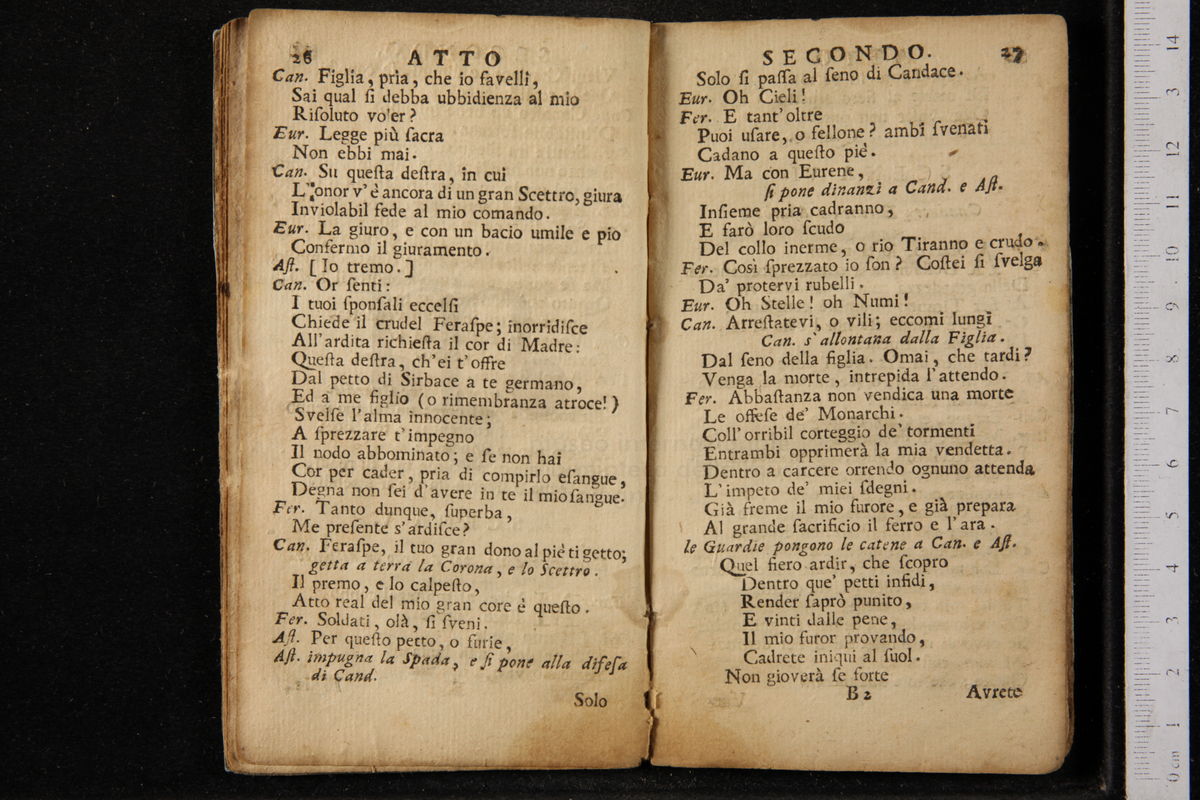 26 ATTO
Can. Figlia, pria, che io favelli,
Sai qual ſi debba ubbidienza al mio
Riſoluto vo'er?
Eur. Legge più ſacra
Non ebbi mai.
Can. Su queſta deſtra, in cui
L'onor v'è ancora di un gran Scettro, giura
Inviolabil fede al mio comando.
Eur. La giuro, e con un bacio umile e pio
Confermo il giuramento.
Aſt. [Io tremo.]
Can. Or ſenti:
I tuoi ſponſali eccelſi
Chiede il crudel Feraſpe; inorridiſce
All'ardita richieſta il cor di Madre:
Queſta deſtra, ch'ei t'offre
Dal petto di Sirbace a te germano,
Ed a me figlio (o rimembranza atroce!)
Svelſe l'alma innocente;
A ſprezzare t'impegno
Il nodo abbominato; e ſe non hai
Cor per cader, pria di compirlo eſangue,
Degna non ſei d'avere in te il mio ſangue.
Fer. Tanto dunque, ſuperba,
Me preſente s'ardiſce?
Can. Feraſpe, il tuo gran dono al piè ti getto;
getta a terra la Corona, e lo Scettro.
Il premo, e lo calpeſto,
Atto real del mio gran core è queſto.
Fer. Soldati, olà, ſi ſveni.
Aſt. Per queſto petto, o furie,
Aſt. impugna la Spada, e ſi pone alla difeſa
di Cand.
Solo
SECONDO. 27
Solo ſi paſſa al ſeno di Candace.
Eur. Oh Cieli!
Fer. E tant'oltre
Puoi uſare, o fellone? ambi ſvenati
Cadano a queſto piè.
Eur. Ma con Eurene,
ſi pone dinanzi a Cand. e Aſt.
Inſieme pria cadranno,
E farò loro ſcudo
Del collo inerme, o rio Tiranno e crudo.
Fer. Così ſprezzato io ſon? Coſtei ſi ſvelga
Da' protervi rubelli.
Eur. Oh Stelle! oh Numi!
Can. Arreſtatevi, o vili; eccomi lungi
Can. s'allontana dalla Figlia.
Dal ſeno della figlia. Omai, che tardi?
Venga la morte, intrepida l'attendo.
Fer. Abbaſtanza non vendica una morte
Le offeſe de' Monarchi.
Coll'orribil corteggio de' tormenti
Entrambi opprimerà la mia vendetta.
Dentro a carcere orrendo ognuno attenda
L'impeto de' miei ſdegni.
Già freme il mio furore, e già prepara
Al grande ſacrificio il ferro e l'ara.
le Guardie pongono le catene a Can. e Aſt.
Quel fiero ardir, che ſcopro
Dentro que' petti infidi,
Render ſaprò punito,
E vinti dalle pene,
Il mio furor provando,
Cadrete iniqui al ſuol.
Non gioverà ſe forte
B 2 Avrete
14
3
12
11
10
9
8
7
6
5
4
3
2
1
0 cm